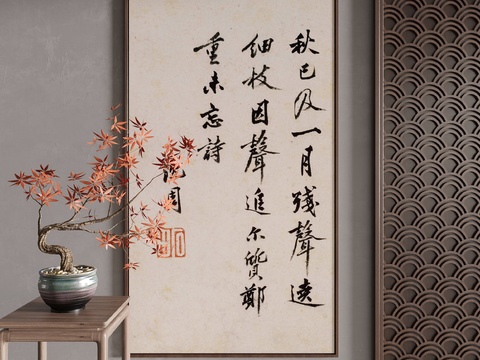 秋已及一月殘聲遶
細枝因聲進尔質鄭
重未忘詩
周